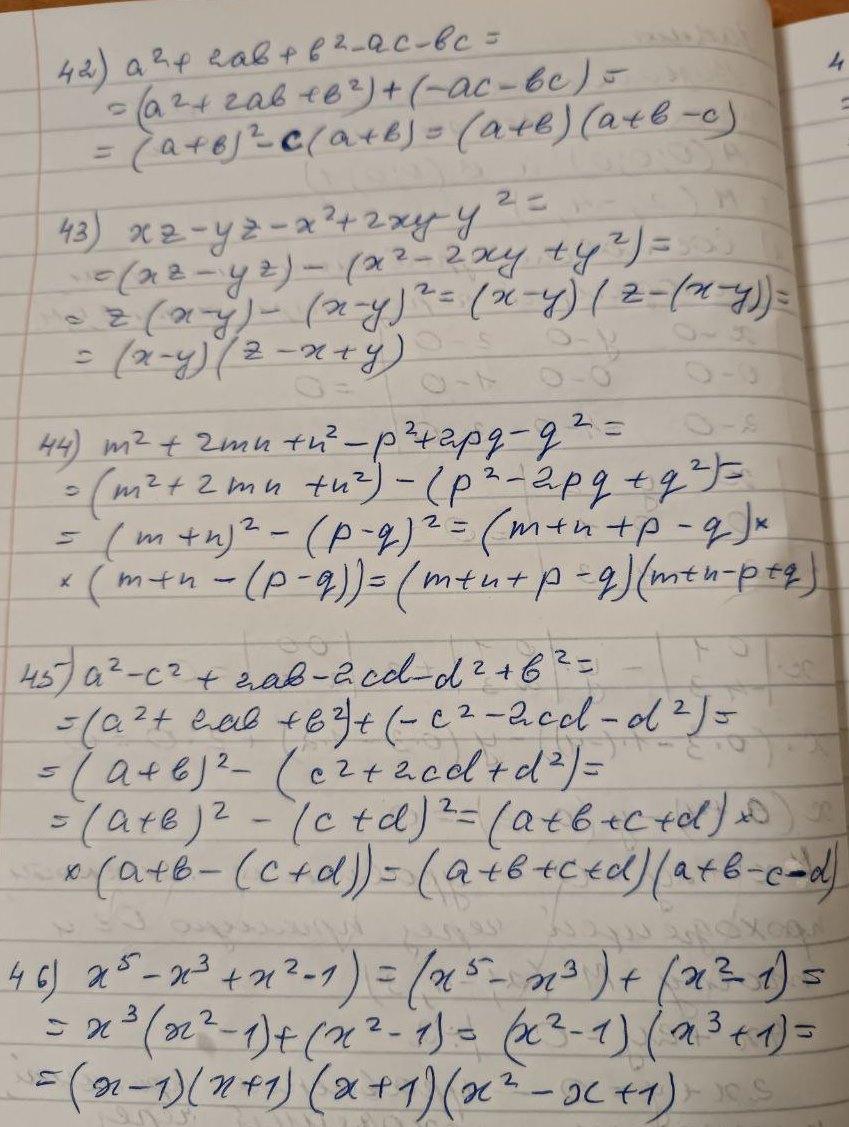 42) a² + 2ab + b² - ac - bc =
= (a² + 2ab + b²) + (-ac - bc) =
= (a+b)² - c(a+b) = (a+b)(a+b-c)
43) xz - yz - x² + 2xy - y² =
= (xz - yz) - (x² - 2xy + y²) =
= z(x-y) - (x-y)² = (x-y)(z-(x-y)) =
= (x-y)(z-x+y)
44) m² + 2mn + n² - p² + 2pq - q² =
= (m² + 2mn + n²) - (p² - 2pq + q²) =
= (m+n)² - (p-q)² = (m+n+p-q) ×
× (m+n-(p-q)) = (m+n+p-q)(m+n-p+q)
45) a² - c² + 2ab - 2cd - d² + b² =
= (a² + 2ab + b²) + (-c² - 2cd - d²) =
= (a+b)² - (c² + 2cd + d²) =
= (a+b)² - (c+d)² = (a+b+c+d) ×
× (a+b-(c+d)) = (a+b+c+d)(a+b-c-d)
46) x⁵ - x³ + x² - 1) = (x⁵ - x³) + (x² - 1) =
= x³(x² - 1) + (x² - 1) = (x² - 1)(x³ + 1) =
= (x-1)(x+1)(x+1)(x² - x + 1)
4
=